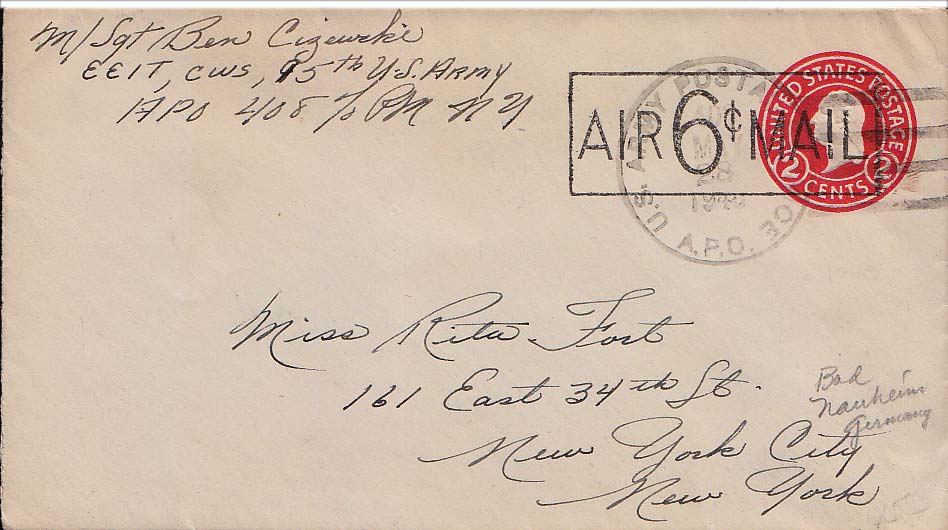 M/Sgt Ben Cizewski
EEIT, CWS, 95th U.S. Army
APO 408 % PM NY
AIR 6¢ MAIL
UNITED STATES POSTAGE
2 CENTS 2
U.S. ARMY POSTAL
A.P.O.
28
Miss Rita Fost
161 East 34th St.
New York City
New York
Bad
Nauheim
Germany